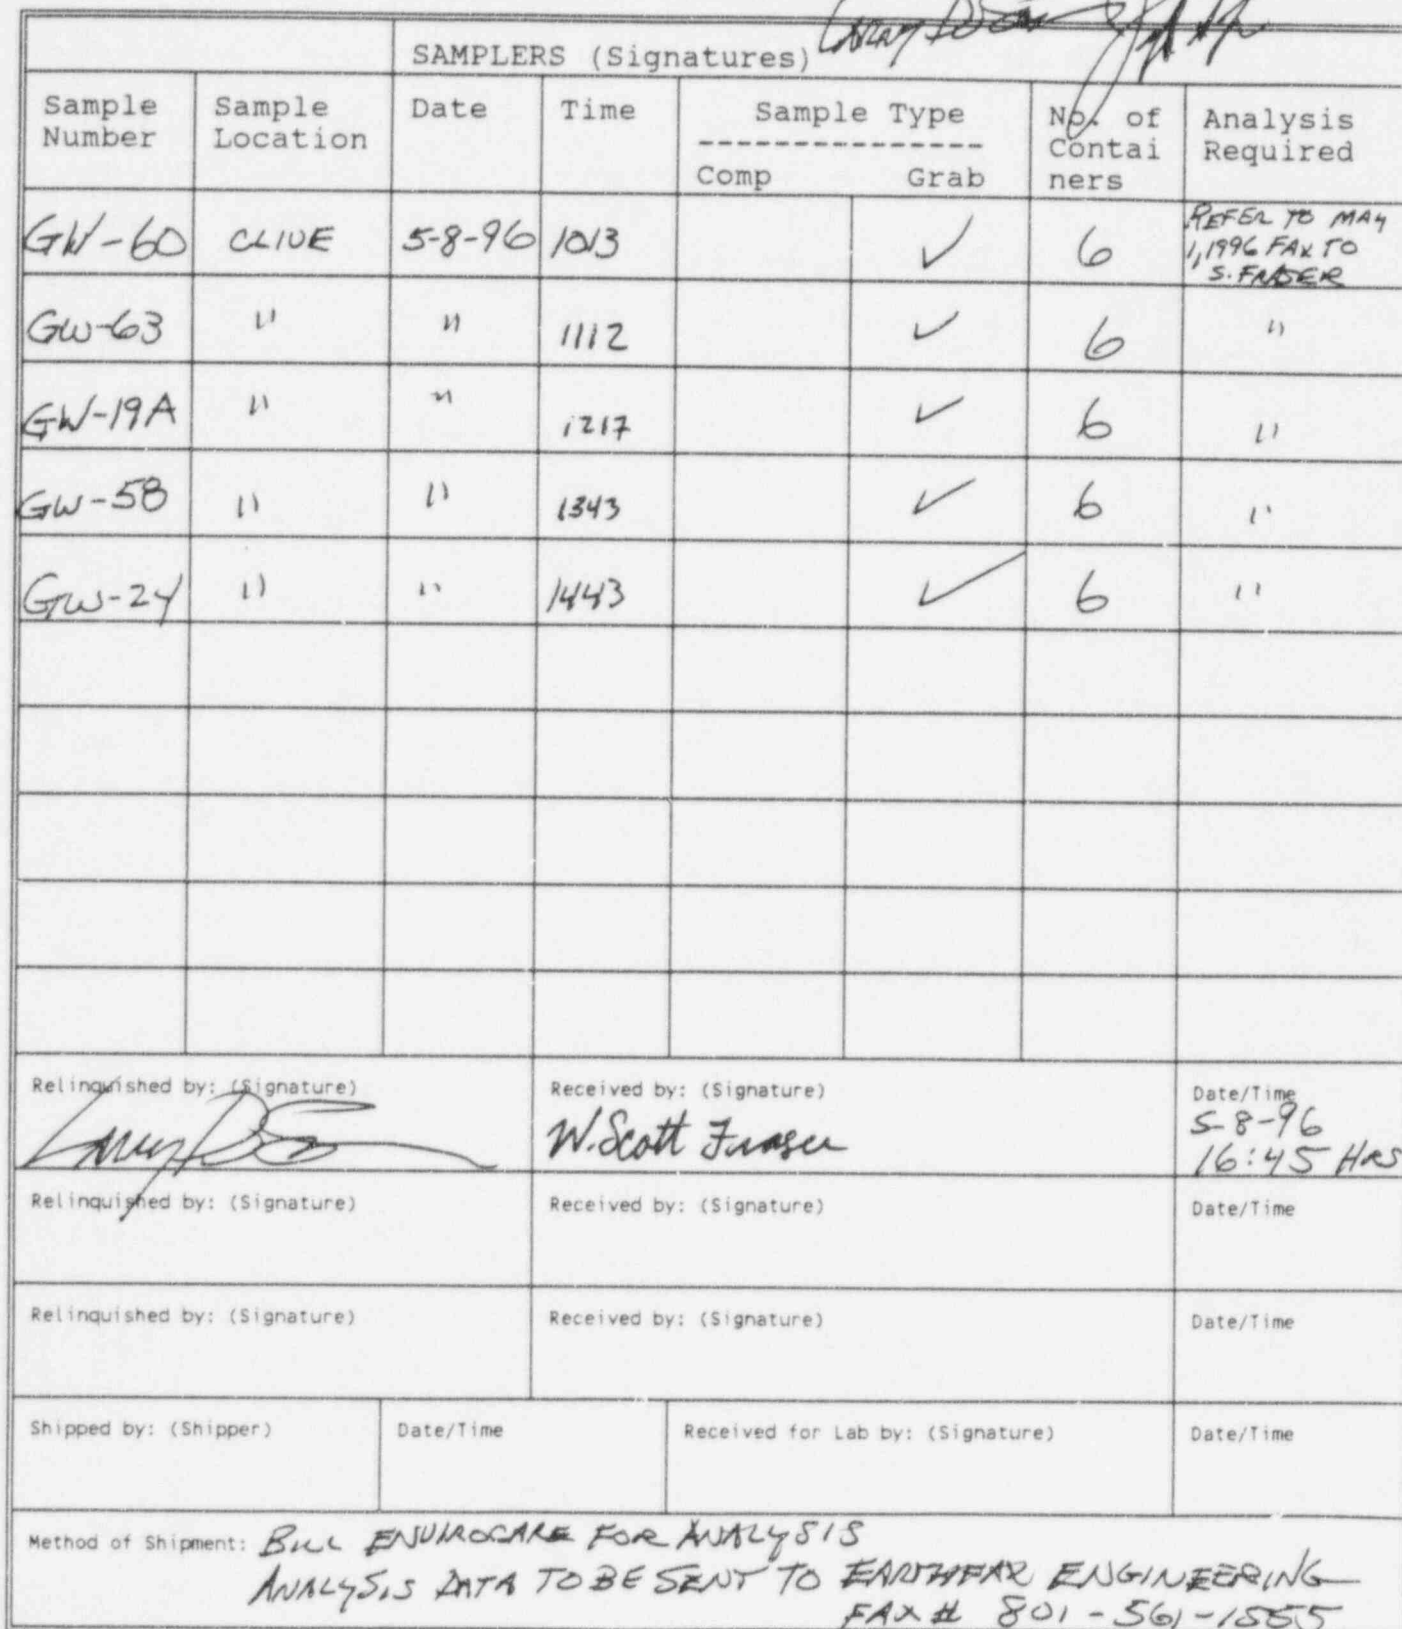 SAMPLERS (Signatures)
Sample Number Sample Location Date Time Sample Type No. of Contai ners Analysis Required
---------------
Comp Grab
GW-60 CLIVE 5-8-96 1013 ✓ 6 REFER TO MAY 1, 1996 FAX TO S. FRASER
GW-63 " " 1112 ✓ 6 "
GW-19A " " 1217 ✓ 6 "
GW-58 " " 1343 ✓ 6 "
GW-24 " " 1443 ✓ 6 "
Relinquished by: (Signature) Received by: (Signature) Date/Time
Larry W. Scott Fraser 5-8-96
16:45 HRS
Relinquished by: (Signature) Received by: (Signature) Date/Time
Relinquished by: (Signature) Received by: (Signature) Date/Time
Shipped by: (Shipper) Date/Time Received for Lab by: (Signature) Date/Time
Method of Shipment: BILL ENVIROCARE FOR ANALYSIS
ANALYSIS DATA TO BE SENT TO EARTHFAX ENGINEERING
FAX # 801-561-1555